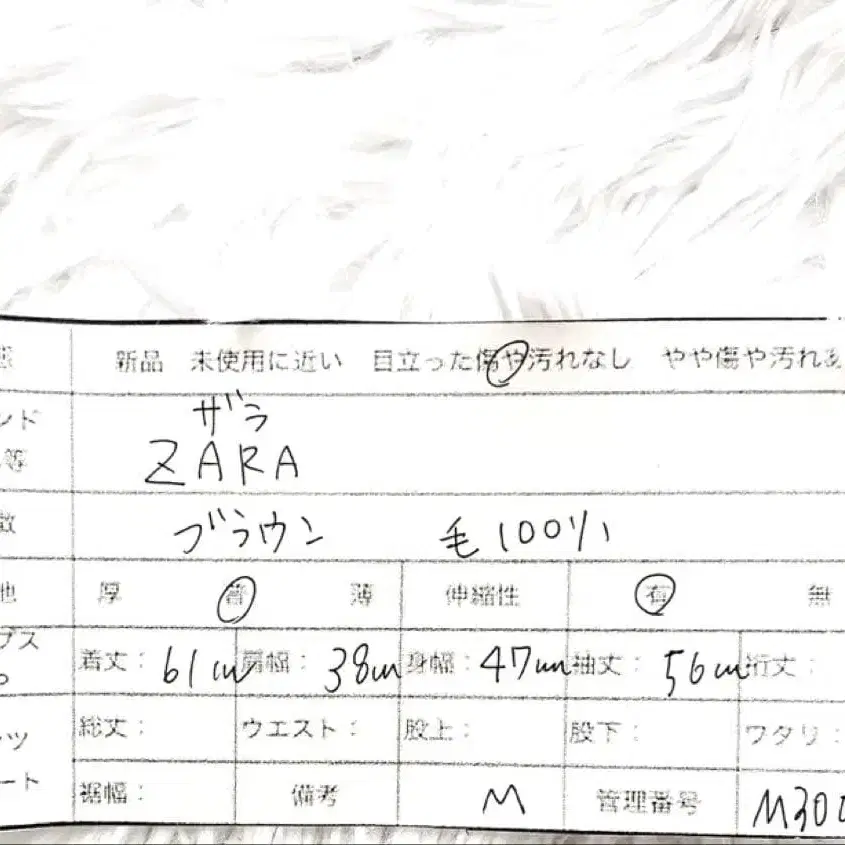 新品 未使用に近い 目立った傷や汚れなし やや傷や汚れあ
ンド
ザラ
等
ZARA
数
ブラウン 毛100%
地 厚 普 薄 伸縮性 有 無
プス
着丈: 61cm 肩幅: 38cm 身幅: 47cm 袖丈: 56cm 裄丈:
総丈: ウエスト: 股上: 股下: ワタリ:
ンツ
ート
裾幅: 備考 M 管理番号 M300